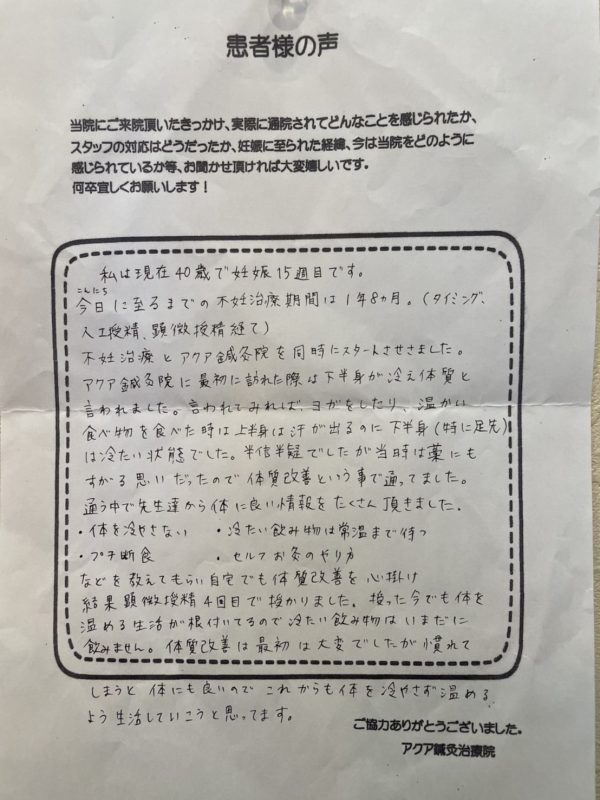 患者様の声
当院にご来院頂いたきっかけ、実際に通院されてどんなことを感じられたか、
スタッフの対応はどうだったか、妊娠に至られた経緯、今は当院をどのように
感じられているか等、お聞かせ頂ければ大変嬉しいです。
何卒宜しくお願いします！
私は現在40歳で妊娠15週目です。
こんにち
今日に至るまでの不妊治療期間は1年8ヵ月。(タイミング、
人工授精、顕微授精経て)
不妊治療とアクア鍼灸院を同時にスタートさせさました。
アクア鍼灸院に最初に訪れた際は下半身が冷え体質と
言われました。言われてみれば、ヨガをしたり、温かい
食べ物を食べた時は上半身は汗が出るのに下半身(特に足先)
は冷たい状態でした。半信半疑でしたが当時は藁にも
すがる思いだったので体質改善という事で通ってました。
通う中で先生達から体に良い情報をたくさん頂きました.
・体を冷やさない ・冷たい飲み物は常温まで待つ
・プチ断食 ・セルフお灸のやり方
などを教えてもらい自宅でも体質改善を心掛け
結果顕微授精4回目で授かりました。授った今でも体を
温める生活が根付いてるので冷たい飲み物はいまだに
飲みません。体質改善は最初は大変でしたが慣れて
しまうと体にも良いのでこれからも体を冷やさず温める
よう生活していこうと思ってます。
ご協力ありがとうございました。
アクア鍼灸治療院